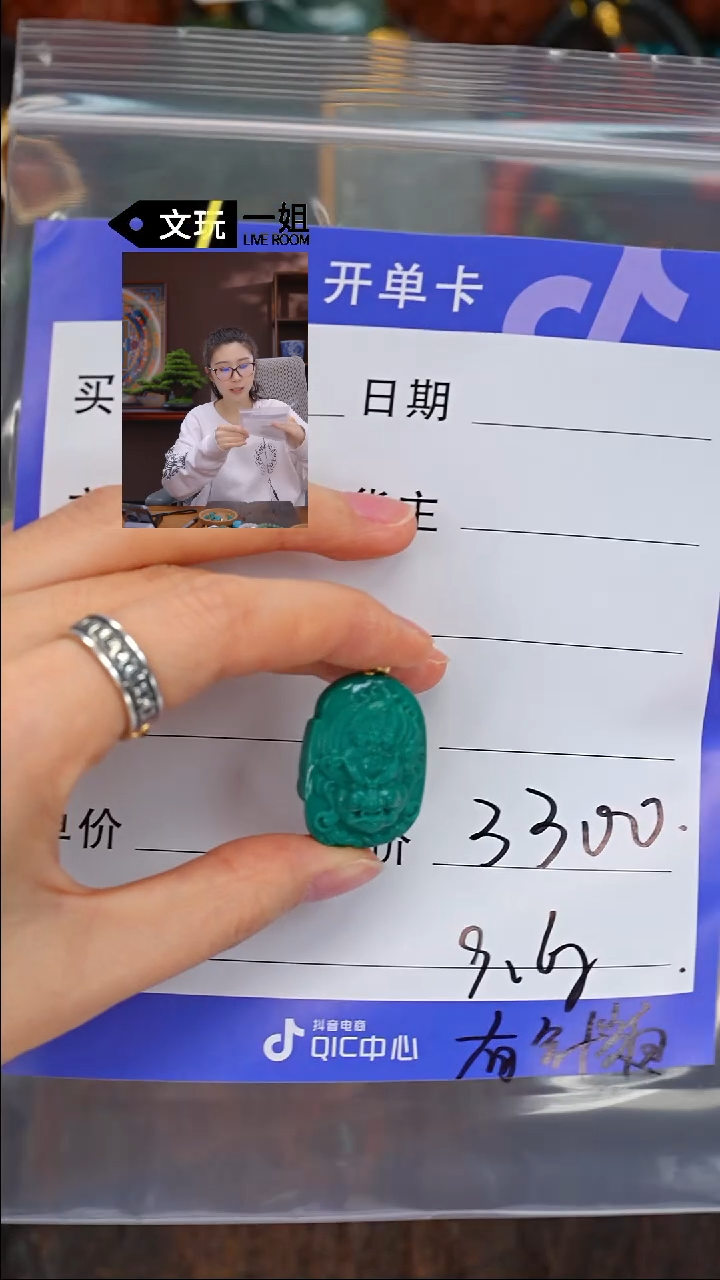 文玩一姐
LIVE ROOM
开单卡
买
日期
货主
单价
价 3300.
9.6g
抖音电商
QIC中心